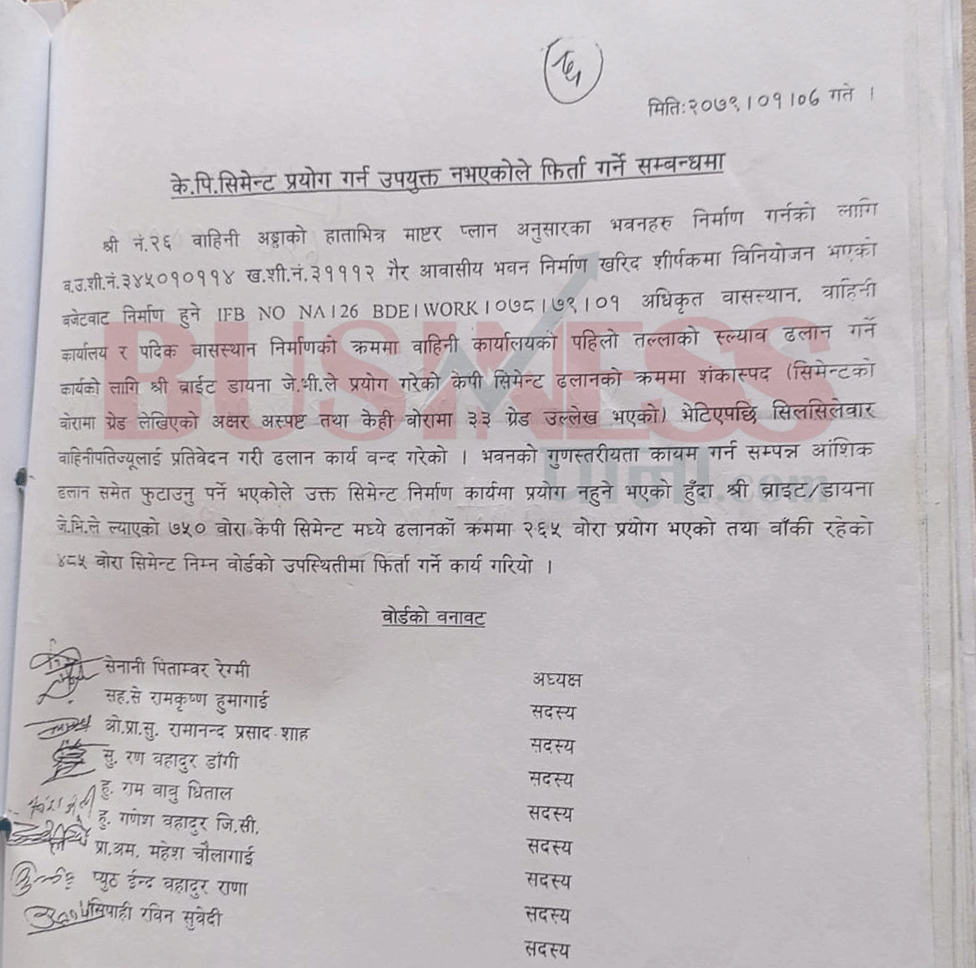 मितिः२०७९।०१।०६ गते ।
के.पि.सिमेन्ट प्रयोग गर्न उपयुक्त नभएकोले फिर्ता गर्ने सम्बन्धमा
श्री नं.२६ वाहिनी अड्डाको हाताभित्र माष्टर प्लान अनुसारका भवनहरु निर्माण गर्नको लागि
ब.उ.शी.नं.३४५०१०११४ ख.शी.नं.३१११२ गैर आवासीय भवन निर्माण खरिद शीर्षकमा विनियोजन भएको
बजेटवाट निर्माण हुने IFB NO NA।26 BDE।WORK।०७८।७९।०१ अधिकृत वासस्थान, वाहिनी
कार्यालय र पदिक वासस्थान निर्माणको क्रममा वाहिनी कार्यालयको पहिलो तल्लाको स्ल्याव ढलान गर्ने
कार्यको लागि श्री ब्राईट डायना जे.भी.ले प्रयोग गरेको केपी सिमेन्ट ढलानको क्रममा शंकास्पद (सिमेन्टको
वोरामा ग्रेड लेखिएको अक्षर अस्पष्ट तथा केही वोरामा ३३ ग्रेड उल्लेख भएको) भेटिएपछि सिलसिलेवार
वाहिनीपतिज्यूलाई प्रतिवेदन गरी ढलान कार्य वन्द गरेको । भवनको गुणस्तरीयता कायम गर्न सम्पन्न आंशिक
ढलान समेत फुटाउनु पर्ने भएकोले उक्त सिमेन्ट निर्माण कार्यमा प्रयोग नहुने भएको हुँदा श्री ब्राइट/डायना
जे.भि.ले ल्याएको ७५० वोरा केपी सिमेन्ट मध्ये ढलानको क्रममा २६५ वोरा प्रयोग भएको तथा वाँकी रहेको
४८५ वोरा सिमेन्ट निम्न वोर्डको उपस्थितीमा फिर्ता गर्ने कार्य गरियो ।
BUSINESS
पाना.com
वोर्डको वनावट
सेनानी पिताम्वर रेग्मी अध्यक्ष
सह.से रामकृष्ण हुमागाई सदस्य
वो.प्रा.सु. रामानन्द प्रसाद शाह सदस्य
सु. रण वहादुर डाँगी सदस्य
हु. राम वावु धिताल सदस्य
हु. गणेश वहादुर जि.सी. सदस्य
प्रा.अम. महेश चौलागाई सदस्य
प्युठ ईन्द्र वहादुर राणा सदस्य
सिपाही रविन सुवेदी सदस्य